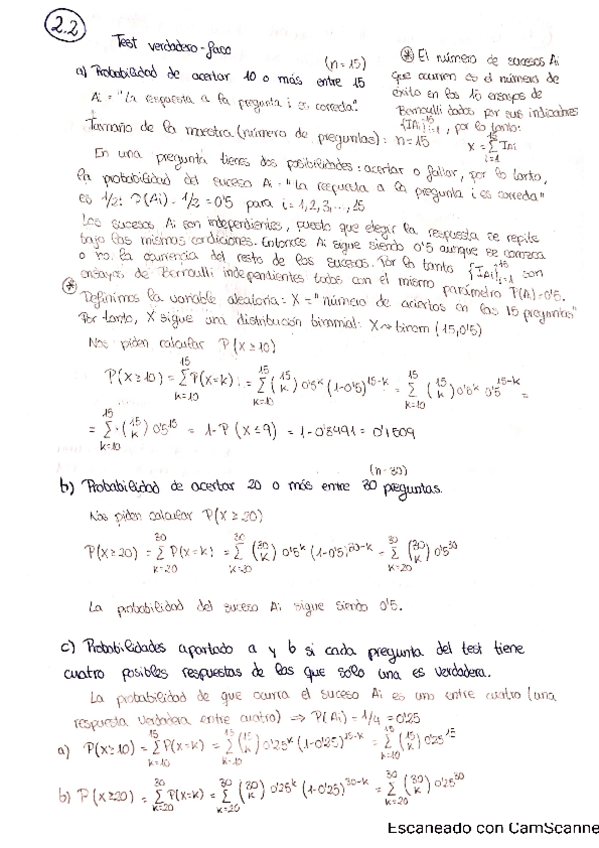 2.2
Test verdadero-falso
a) Probabilidad de acertar 10 o más entre 15 (n=15)
Ai = "La respuesta a la pregunta i es correcta".
Tamaño de la muestra (número de preguntas): n=15
⊛ El número de sucesos Ai
que ocurren es el número de
éxito en los 15 ensayos de
Bernoulli dados por sus indicadores
{IAi}i=1^15, por lo tanto:
X = Σ(i=1 to 15) IAi
En una pregunta tienes dos posibilidades: acertar o fallar, por lo tanto,
la probabilidad del suceso Ai = "La respuesta a la pregunta i es correcta"
es 1/2: P(Ai) = 1/2 = 0'5 para i = 1,2,3,...,15
Los sucesos Ai son independientes, puesto que elegir la respuesta se repite
bajo las mismas condiciones. Entonces Ai sigue siendo 0'5 aunque se conozca
o no la ocurrencia del resto de los sucesos. Por lo tanto {IAi}i=1^15 son
ensayos de Bernoulli independientes todos con el mismo parámetro P(A)=0'5.
⊛ Definimos la variable aleatoria: X = "número de aciertos en las 15 preguntas"
Por tanto, X sigue una distribución binomial: X ~> binom (15,0'5)
Nos piden calcular P(X≥10)
P(X≥10) = Σ(k=10 to 15) P(X=k) = Σ(k=10 to 15) (15 k) 0'5^k (1-0'5)^15-k = Σ(k=10 to 15) (15 k) 0'5^k 0'5^15-k =
= Σ(k=10 to 15) (15 k) 0'5^15 = 1-P(X≤9) = 1-0'8491 = 0'1509
b) Probabilidad de acertar 20 o más entre 30 preguntas. (n=30)
Nos piden calcular P(X≥20)
P(X≥20) = Σ(k=20 to 30) P(X=k) = Σ(k=20 to 30) (30 k) 0'5^k (1-0'5)^30-k = Σ(k=20 to 30) (30 k) 0'5^30
La probabilidad del suceso Ai sigue siendo 0'5.
c) Probabilidades apartado a y b si cada pregunta del test tiene
cuatro posibles respuestas de las que sólo una es verdadera.
La probabilidad de que ocurra el suceso Ai es uno entre cuatro (una
respuesta verdadera entre cuatro) ⟹ P(Ai) = 1/4 = 0'25
a) P(X≥10) = Σ(k=10 to 15) P(X=k) = Σ(k=10 to 15) (15 k) 0'25^k (1-0'25)^15-k = Σ(k=10 to 15) (15 k) 0'25^15
b) P(X≥20) = Σ(k=20 to 30) P(X=k) = Σ(k=20 to 30) (30 k) 0'25^k (1-0'25)^30-k = Σ(k=20 to 30) (30 k) 0'25^30
Escaneado con CamScanne